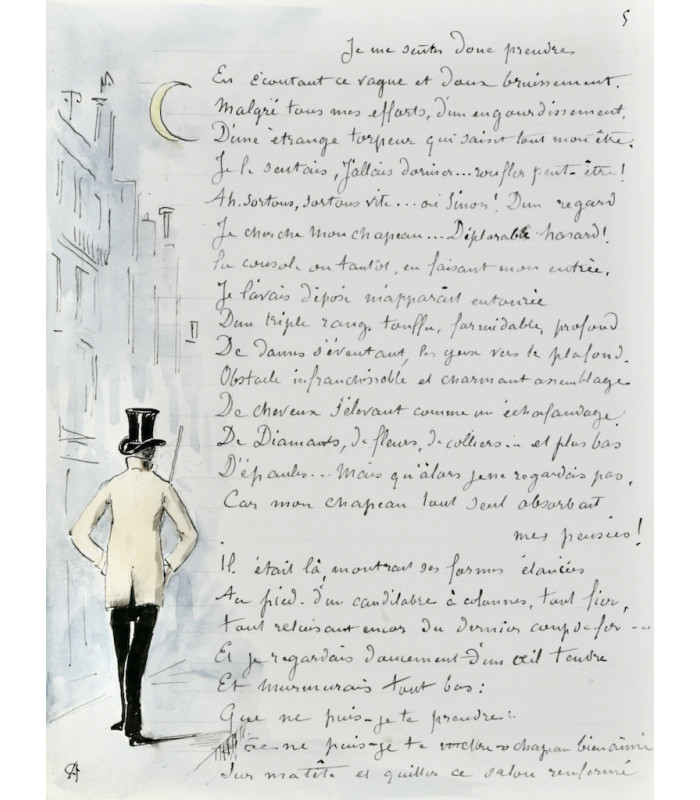 5
Je me sentis donc prendre
En écoutant ce vague et doux bruissement.
Malgré tous mes efforts, d'un engourdissement,
D'une étrange torpeur qui saisit tout mon être.
Je le sentais, J'allais dormir... ronfler peut-être!
Ah. Sortons, sortons vite... ou Sinon! D'un regard
Je cherche mon chapeau... Déplorable hasard!
La console où tantôt, en faisant mon entrée,
Je l'avais déposé m'apparait entourée
D'un triple rang. Touffu, formidable, profond
De dames s'éventant, les yeux vers le plafond.
Obstacle infranchissable et charmant assemblage
De cheveux s'élevant comme un échafaudage
De Diamants, de fleurs, de colliers... et plus bas
D'épaules... Mais qu'alors je ne regardais pas,
Car mon chapeau tout seul absorbait
mes pensées!
Il était là, montrant ses formes élancées
Au pied d'un candélabre à colonnes, tout fier,
Tout reluisant encor du dernier coup de fer...
Et je regardais doucement d'un œil tendre
Et murmurais tout bas:
Que ne puis-je te prendre?
Que ne puis-je te mettre ô chapeau bien aimé
Sur ma tête et quitter ce salon renfermé